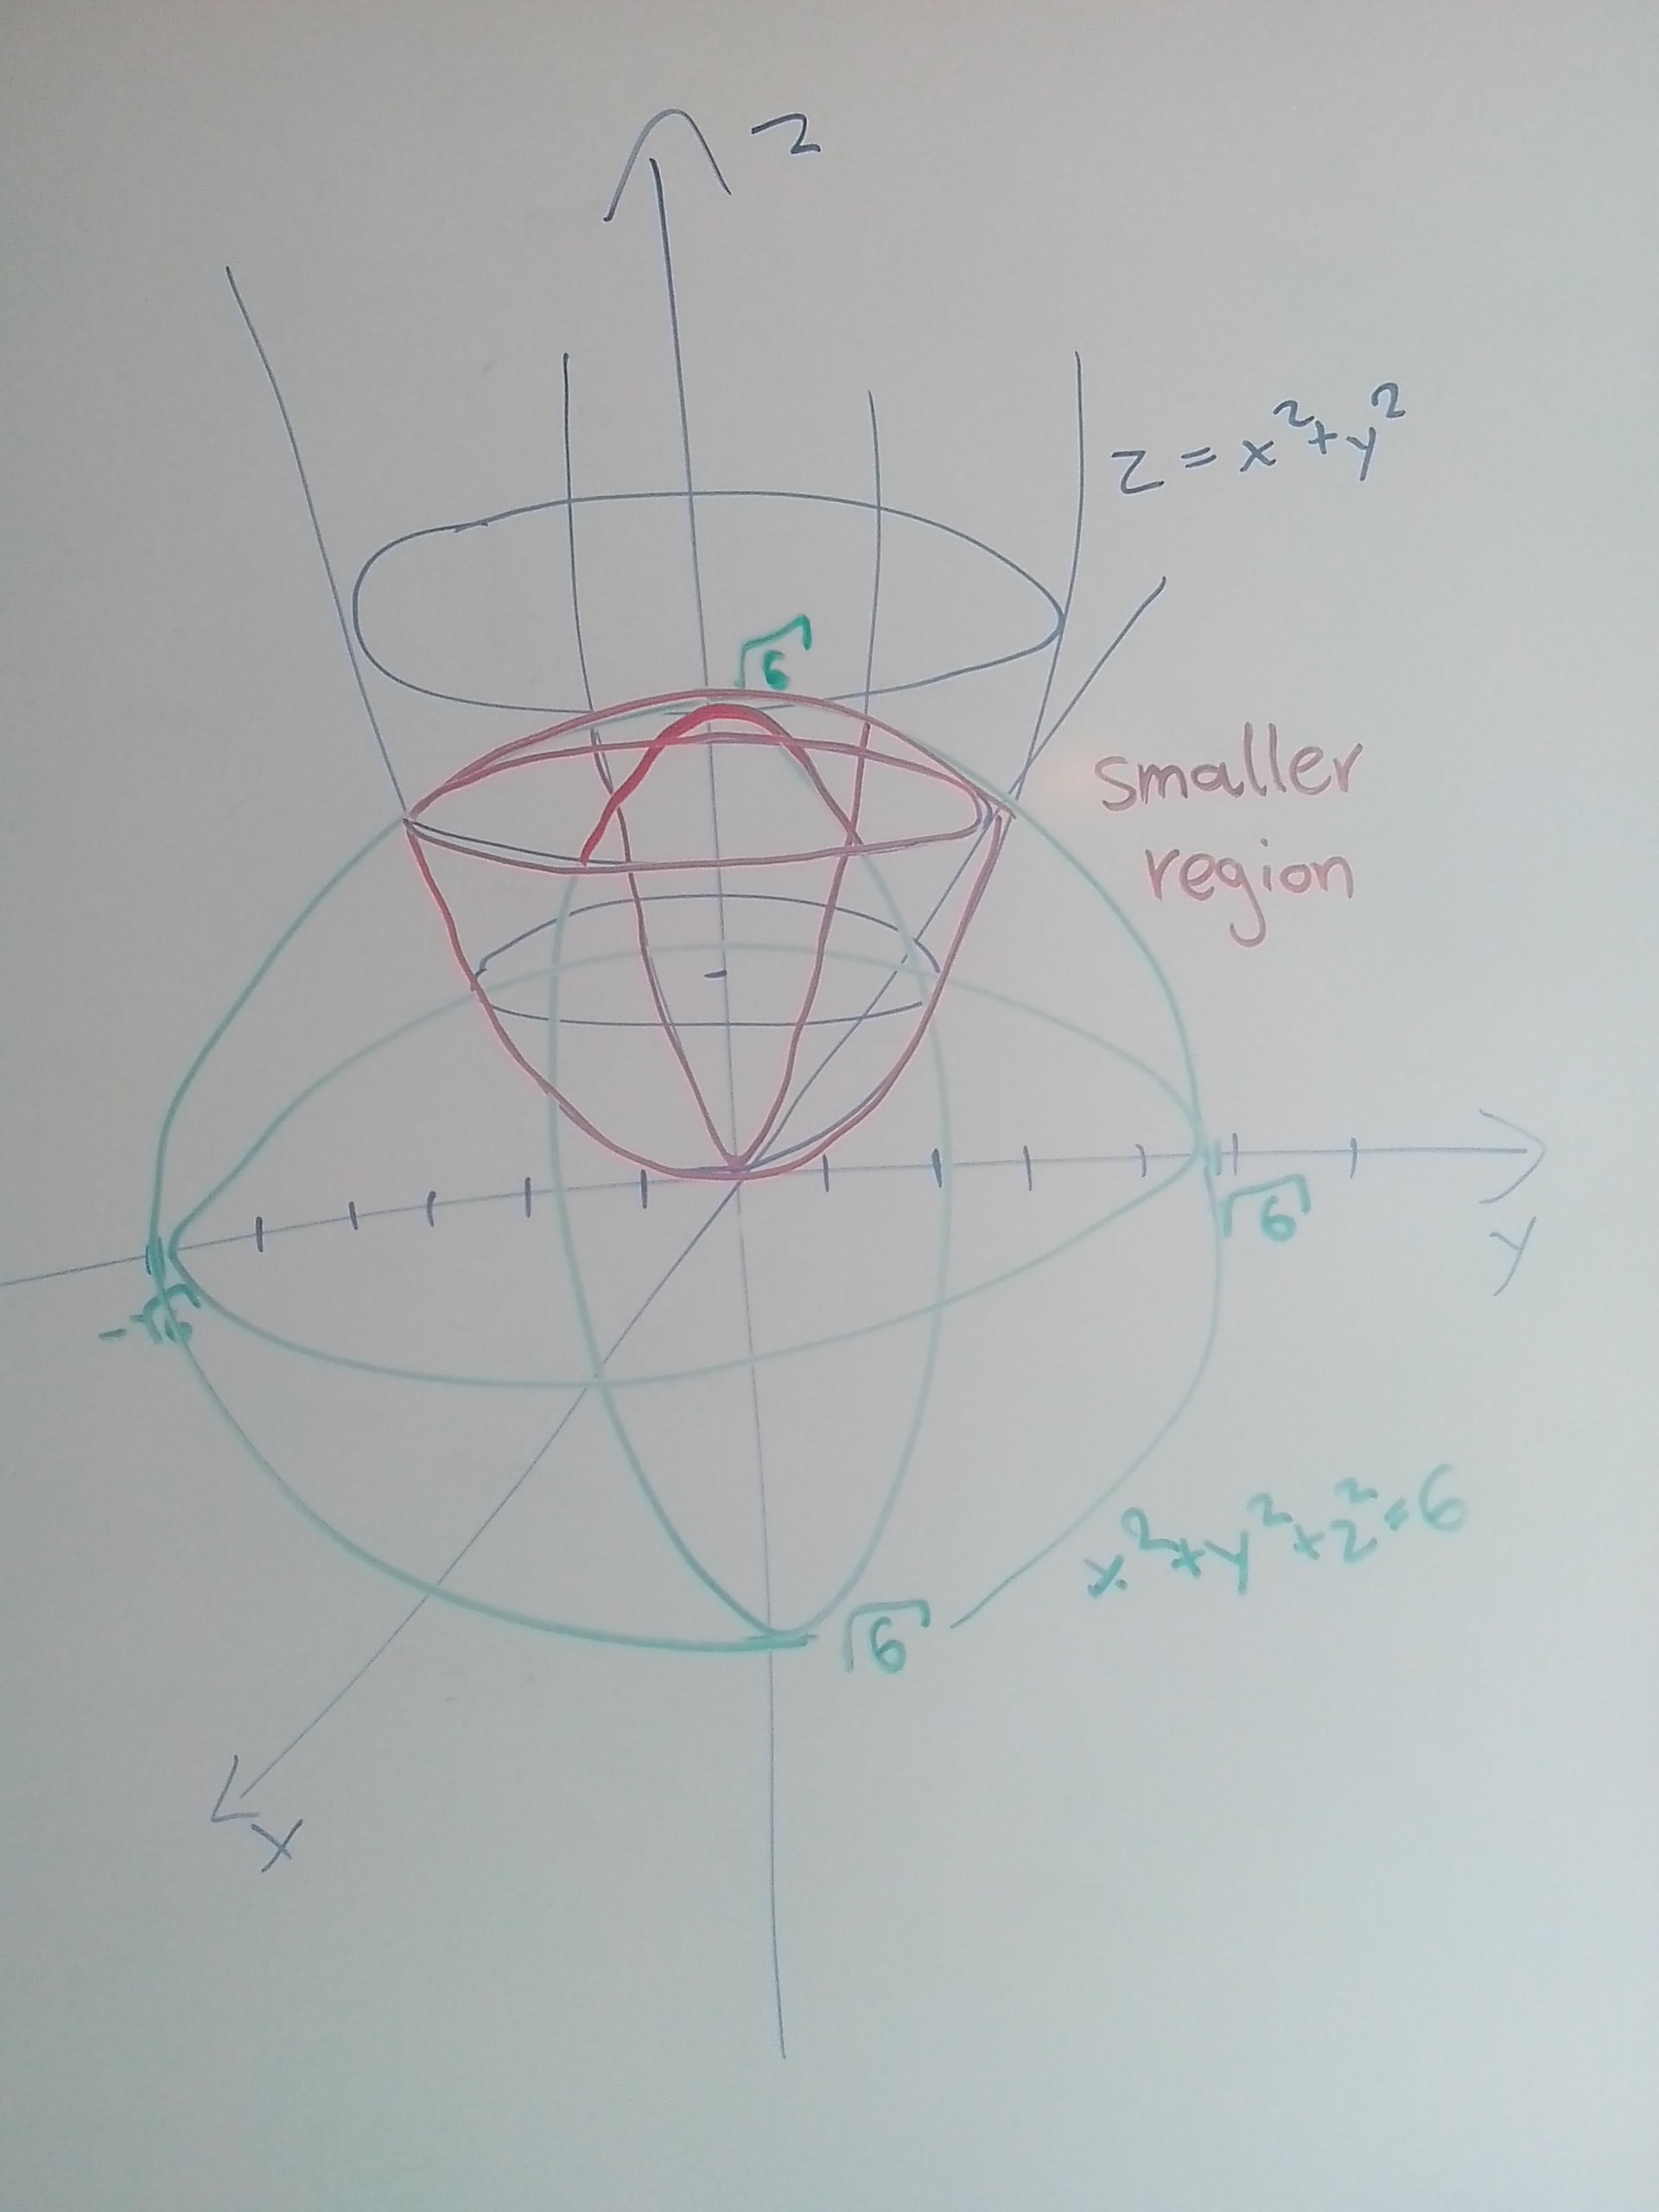 z
z = x²+y²
√6
smaller
region
√6
y
-√6
x²+y²+z²=6
√6
x